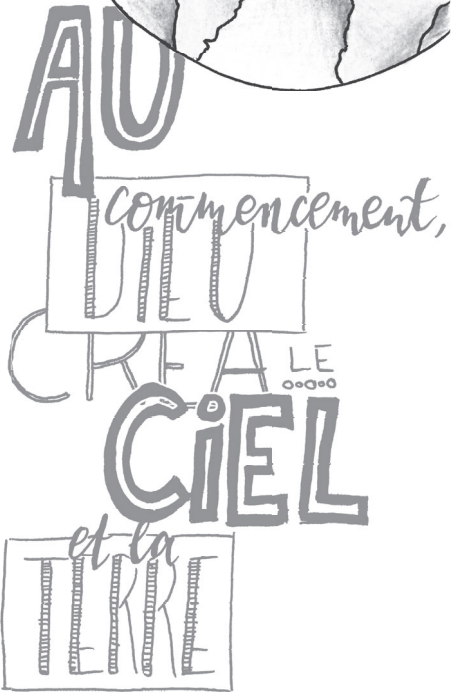 AU
commencement,
DIEU
CRÉA LE
CIEL
et la
TERRE